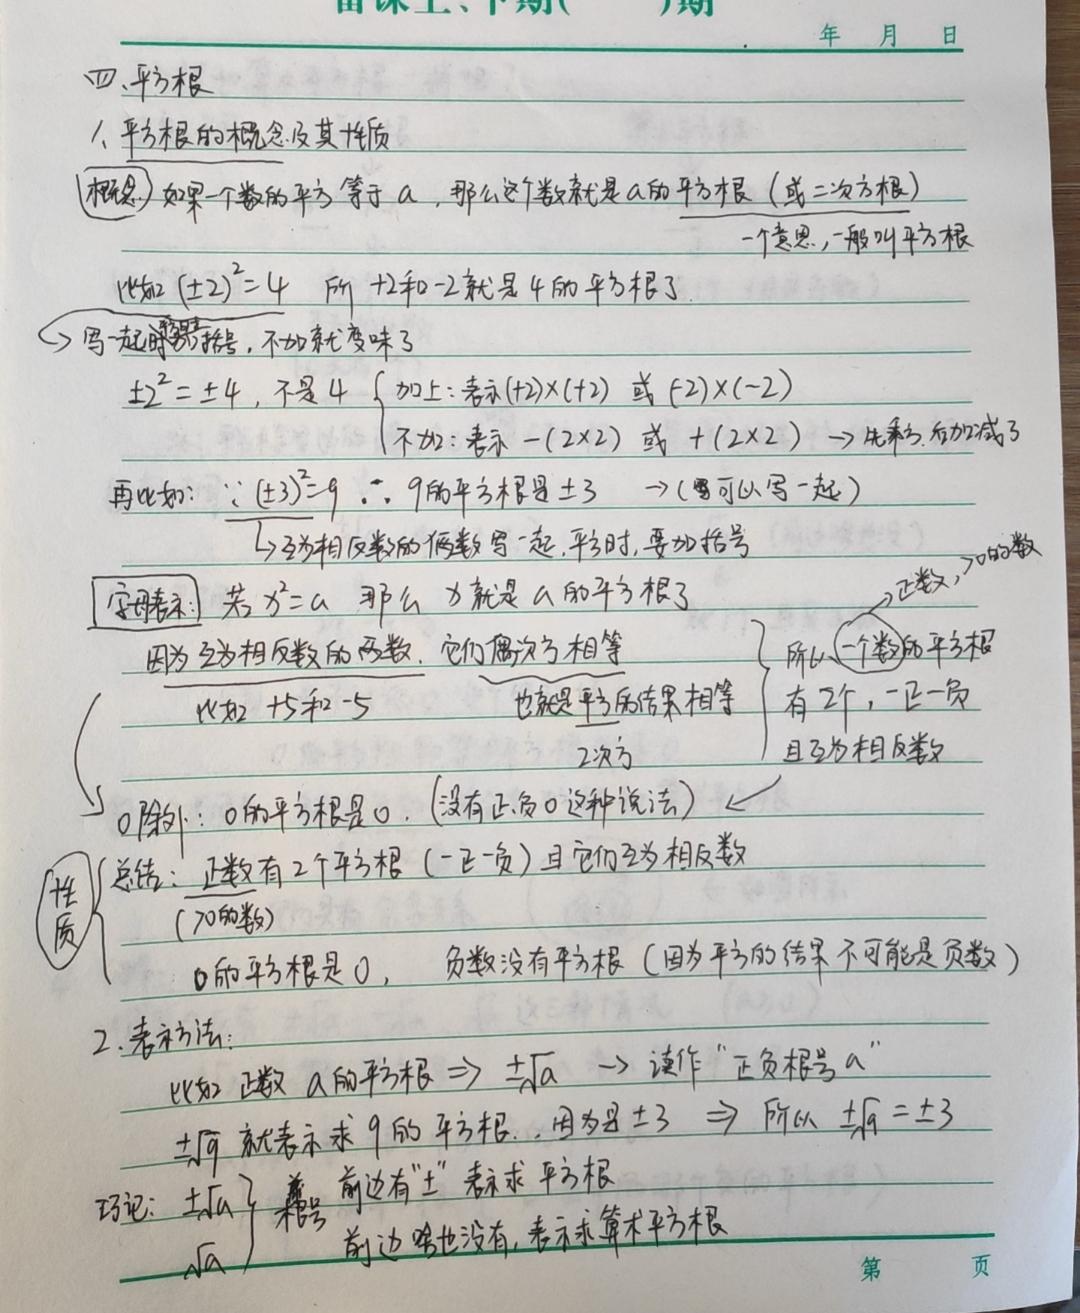 备课上、下期( )期
年 月 日
四、平方根
1、平方根的概念及其性质
概念 如果一个数的平方等于a，那么这个数就是a的平方根（或二次方根）
一个意思，一般叫平方根
比如 (±2)²=4 所 +2和-2就是4的平方根了
→写一起时括号，不加就变味了
±2²=±4，不是4 { 加上：表示(+2)×(+2) 或 (-2)×(-2)
不加：表示 -(2×2) 或 +(2×2) → 先乘方，后加减了
再比如：∵ (±3)²=9 ∴ 9的平方根是±3 →(可以写一起)
↳互为相反数的俩数写一起，平方时，要加括号
→正数，>0的数
字母表示： 若x²=a 那么 x就是a的平方根了
因为互为相反数的两数，它们偶次方相等
所以一个数的平方根
比如 +5和-5 也就是平方的结果相等
有2个，一正一负
2次方
且互为相反数
0除外：0的平方根是0．（没有正负0这种说法）
性质
总结：正数有2个平方根（一正一负）且它们互为相反数
(>0的数)
0的平方根是0， 负数没有平方根（因为平方的结果不可能是负数）
2．表示方法：
比如 正数 a的平方根 ⇒ ±√a → 读作"正负根号a"
±√9 就表示求9的平方根．，因为是±3 ⇒ 所以 ±√9=±3
巧记：±√a } 根号 前边有"±"表示求平方根
√a 前边啥也没有，表示求算术平方根
第 页